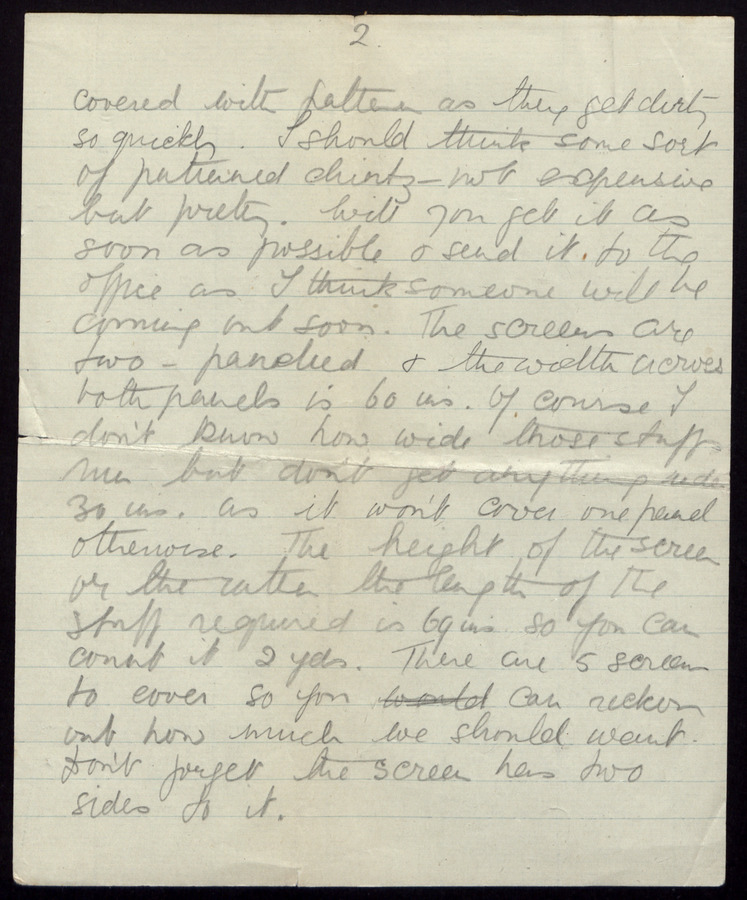 2.
covered with pattern as they get dirty
so quickly. I should think some sort
of patterned chintz – not expensive
but pretty. Will you get it as
soon as possible & send it to the
office as I think someone will be
coming out soon. The screens are
two – panelled & the width across
both panels is 60 ins. Of course I
don't know how wide those stuffs
run but don't get anything under
30 ins. as it won't cover one panel
otherwise. The height of the screen
or the rather the length of the
stuff required is 69 ins so you can
count it 2 yds. There are 5 screens
to cover so you would can reckon
out how much we should want.
Don't forget the screen has two
sides to it.